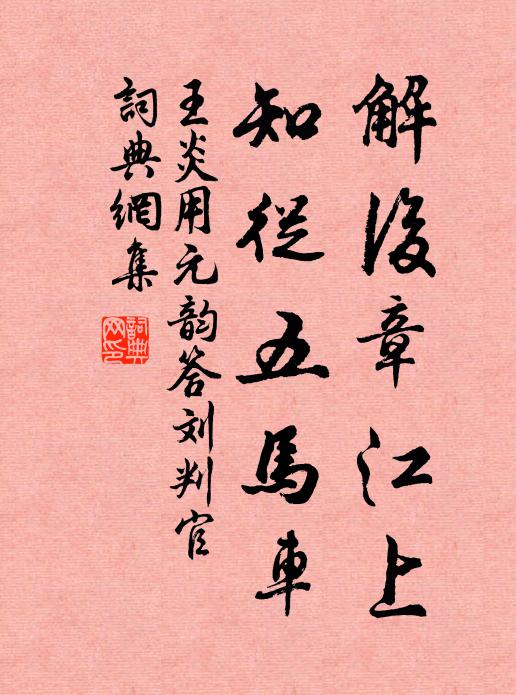 解後章江上
知從五馬車
王炎用元韵答刘判官
詞典網集
詞典網印